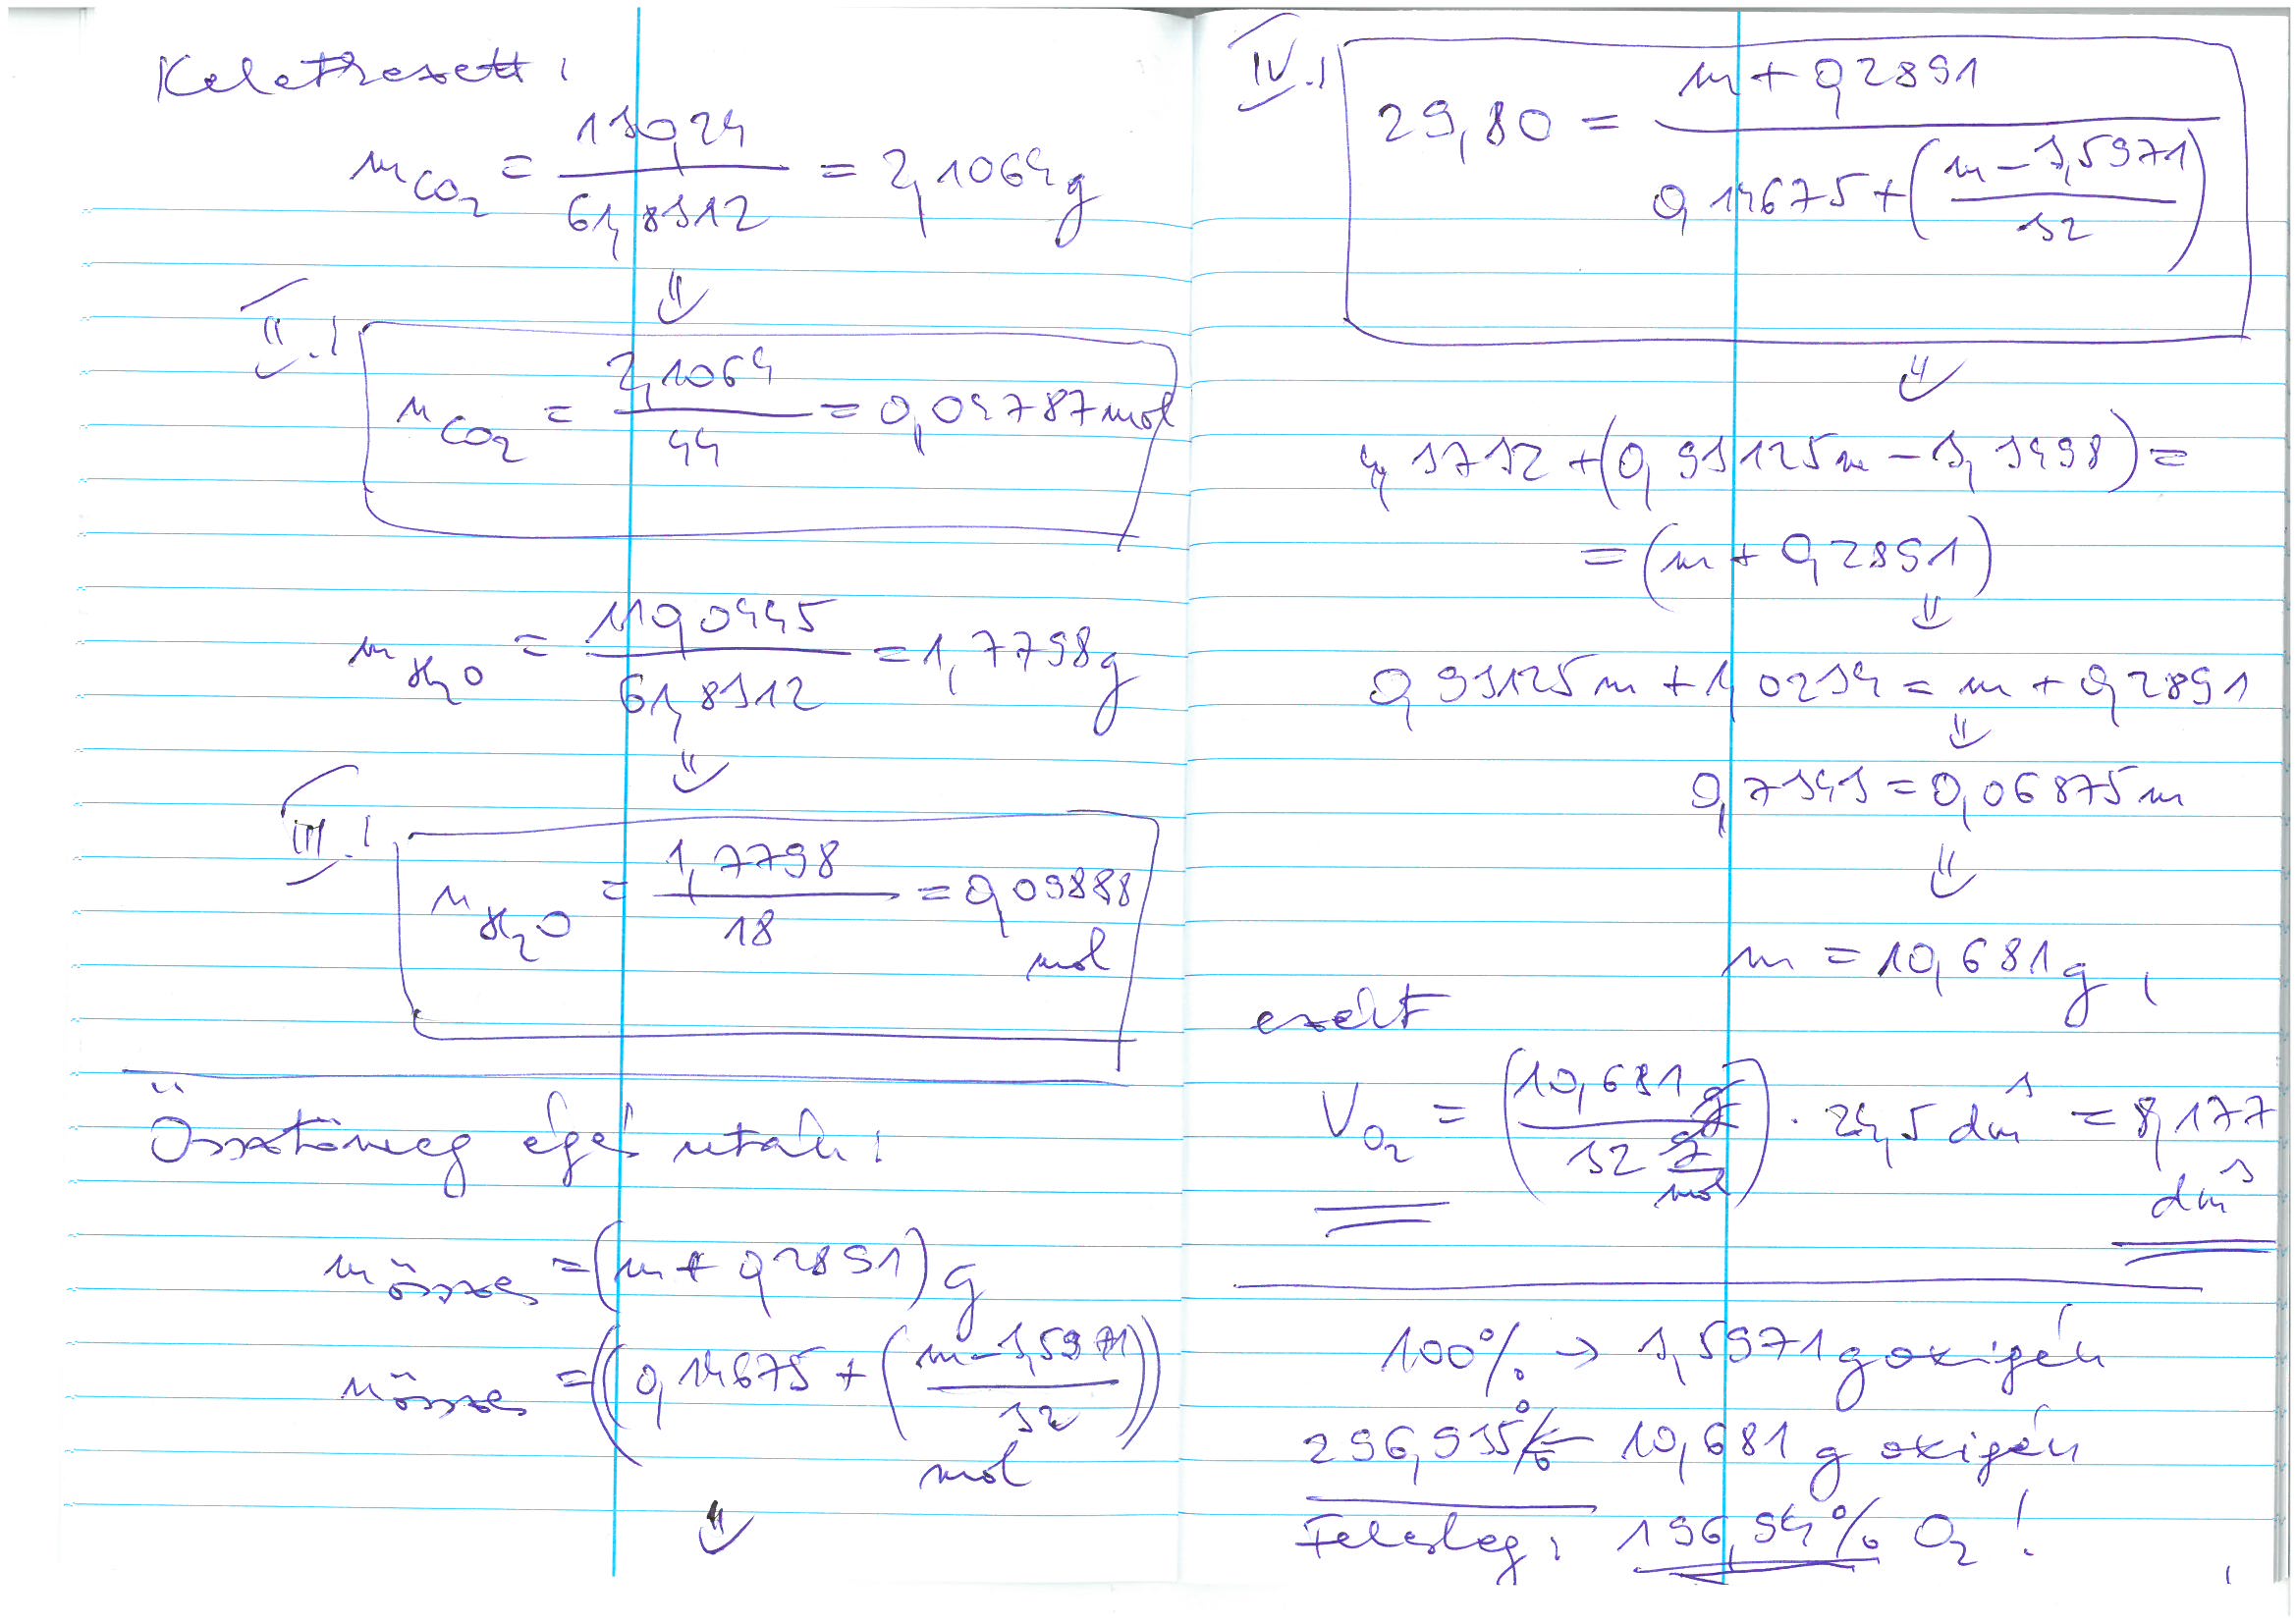 Keletkezett:
m_CO2 = 130,24 / 61,8312 = 2,1064 g
⇓
II.) n_CO2 = 2,1064 / 44 = 0,04787 mol
m_H2O = 110,0445 / 61,8312 = 1,7798 g
⇓
III.) n_H2O = 1,7798 / 18 = 0,09888
mol
Össztömeg égés után:
m_összes = (m + 0,2891) g
n_összes = ((0,14675 + ((m − 3,5971) / 32))
mol
⇓
IV.) 29,80 = (m + 0,2891) / (0,14675 + ((m − 3,5971) / 32))
⇓
4,3732 + (0,93125m − 3,3498) =
= (m + 0,2891)
⇓
0,93125m + 1,0234 = m + 0,2891
⇓
0,7343 = 0,06875m
⇓
m = 10,681 g,
ezért
V_O2 = (10,681 g / 32 g/mol) · 24,5 dm³ = 8,177
dm³
100% → 3,5971 g oxigén
296,935% ← 10,681 g oxigén
Felesleg: 196,94% O2!